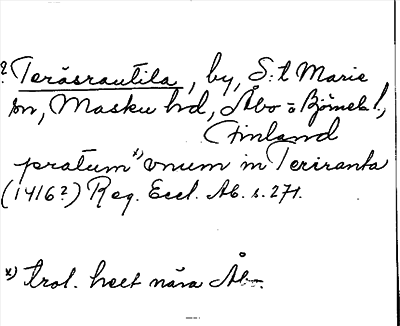 ? Teräsrautila, by, S:t Marie
sn, Masku hd, Åbo o Björneb l.,
Finland
pratum x) vnum in Teriranta
(1416?) Reg. Eccl. Ab. s. 271.
x) trol. helt nära Åbo.